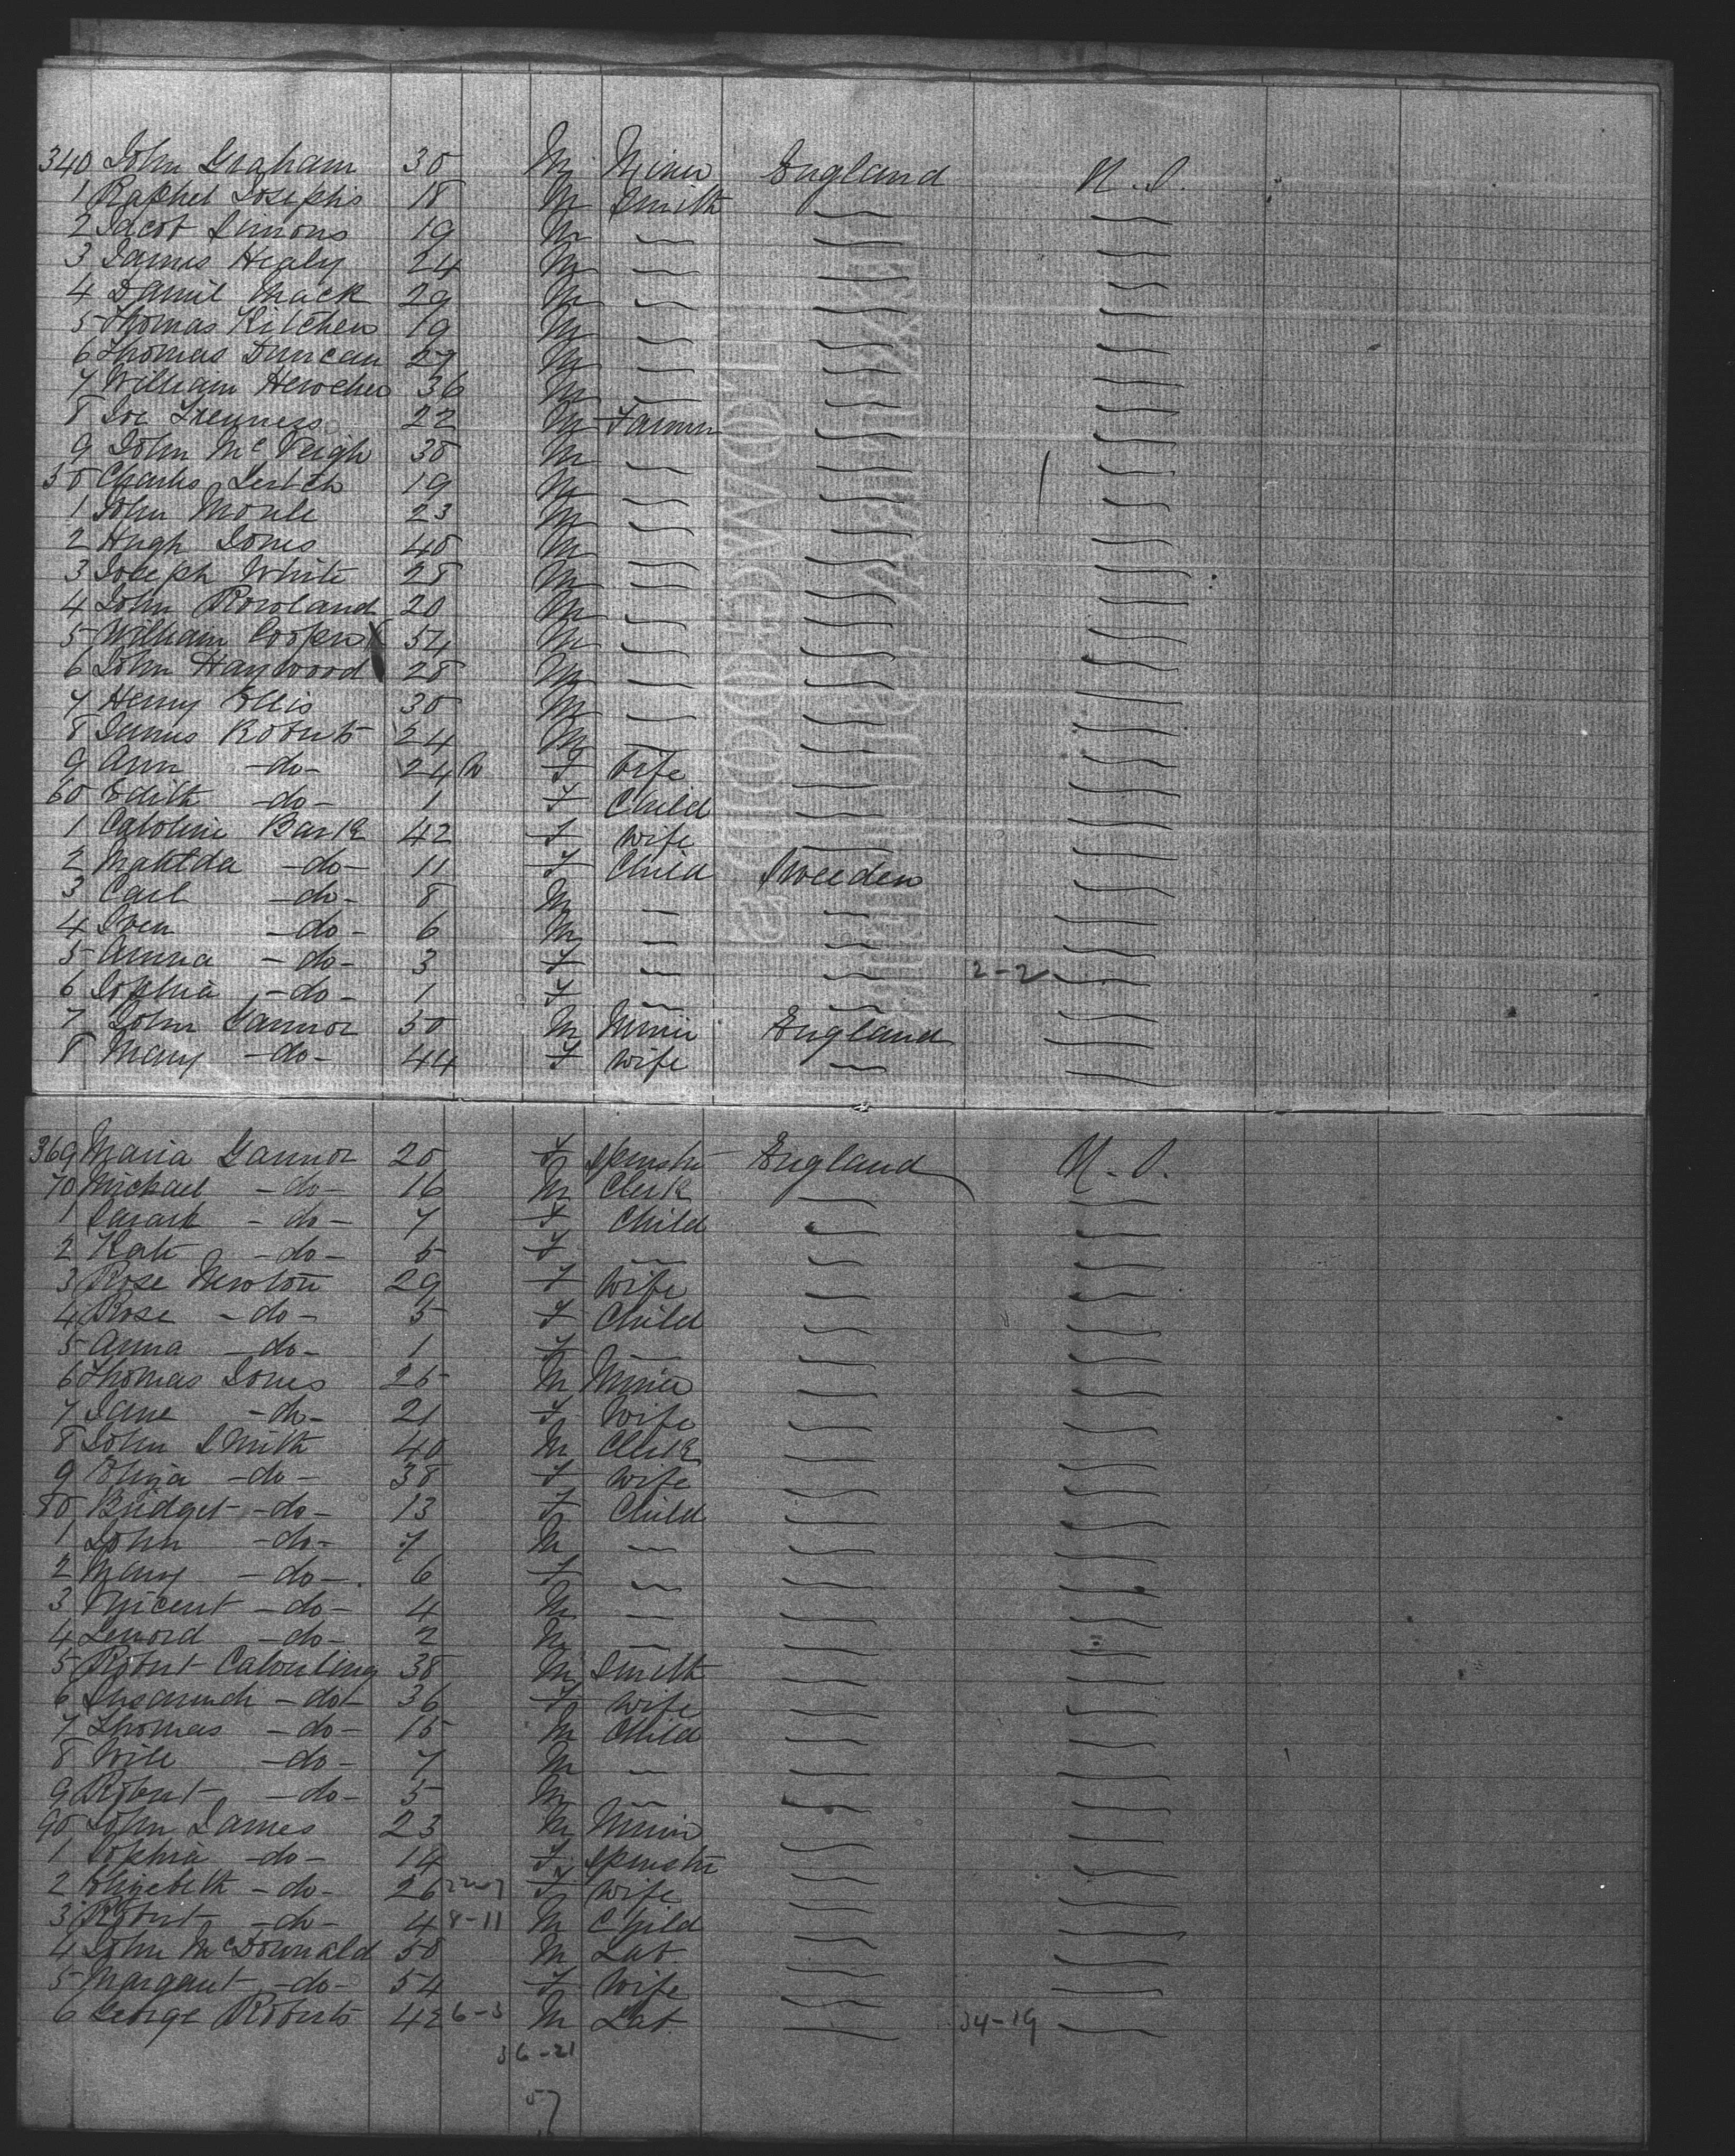 340 John Graham 30 M Miner England U. S.
1 Raphel Josephs 18 M Smith
2 Jacob Simons 19 M
3 James Healy 24 M
4 Daniel Mack 29 M
5 Thomas Kitchen 19 M
6 Thomas Duncan 27 M
7 William 36 M
8 Joe 22 M Farmer
9 John McVeigh 30 M
50 Charles 19 M
1 John 23 M
2 Hugh Jones 40 M
3 Joseph White 28 M
4 John Rowland 20 M
5 William Cooper 54 M
6 John Haywood 28 M
7 Henry Ellis 30 M
8 James Roberts 24 M
9 Ann -do- 24 F Wife
60 Edith -do- 1 F Child
1 Caroline Bark 42 F Wife
2 Matilda -do- 11 F Child Sweeden
3 Carl -do- 8 M
4 Sven -do- 6 M
5 Anna -do- 3 F 2-2
6 Sophia -do- 1 F
7 John Gannor 50 M Miner England
8 Mary -do- 44 F Wife
369 Maria Gannor 20 F Spinster England U. S.
70 Michael -do- 16 M Clerk
1 Sarah -do- 7 F Child
2 Kate -do- 5 F
3 Rose Newton 29 F Wife
4 Rose -do- 5 F Child
5 Anna -do- 1 F
6 Thomas Jones 25 M Miner
7 Jane -do- 21 F Wife
8 John Smith 40 M Clerk
9 Eliza -do- 38 F Wife
80 Bridget -do- 13 F Child
1 John -do- 7 M
2 Mary -do- 6 F
3 Vincent -do- 4 M
4 Lenord -do- 2 M
5 Robert 38 M Smith
6 -do- 36 F Wife
7 Thomas -do- 15 M Child
8 Will -do- 7 M
9 Robert -do- 5 M
90 John James 23 M Miner
1 Sophia -do- 19 F Spinster
2 Elizebeth -do- 26 F Wife
3 Robert -do- 4 8-11 M Child
4 John McDownald 50 M Lab
5 Margaret -do- 54 F Wife
6 George Roberts 42 6-3 M Lab 34-19
36-21
57